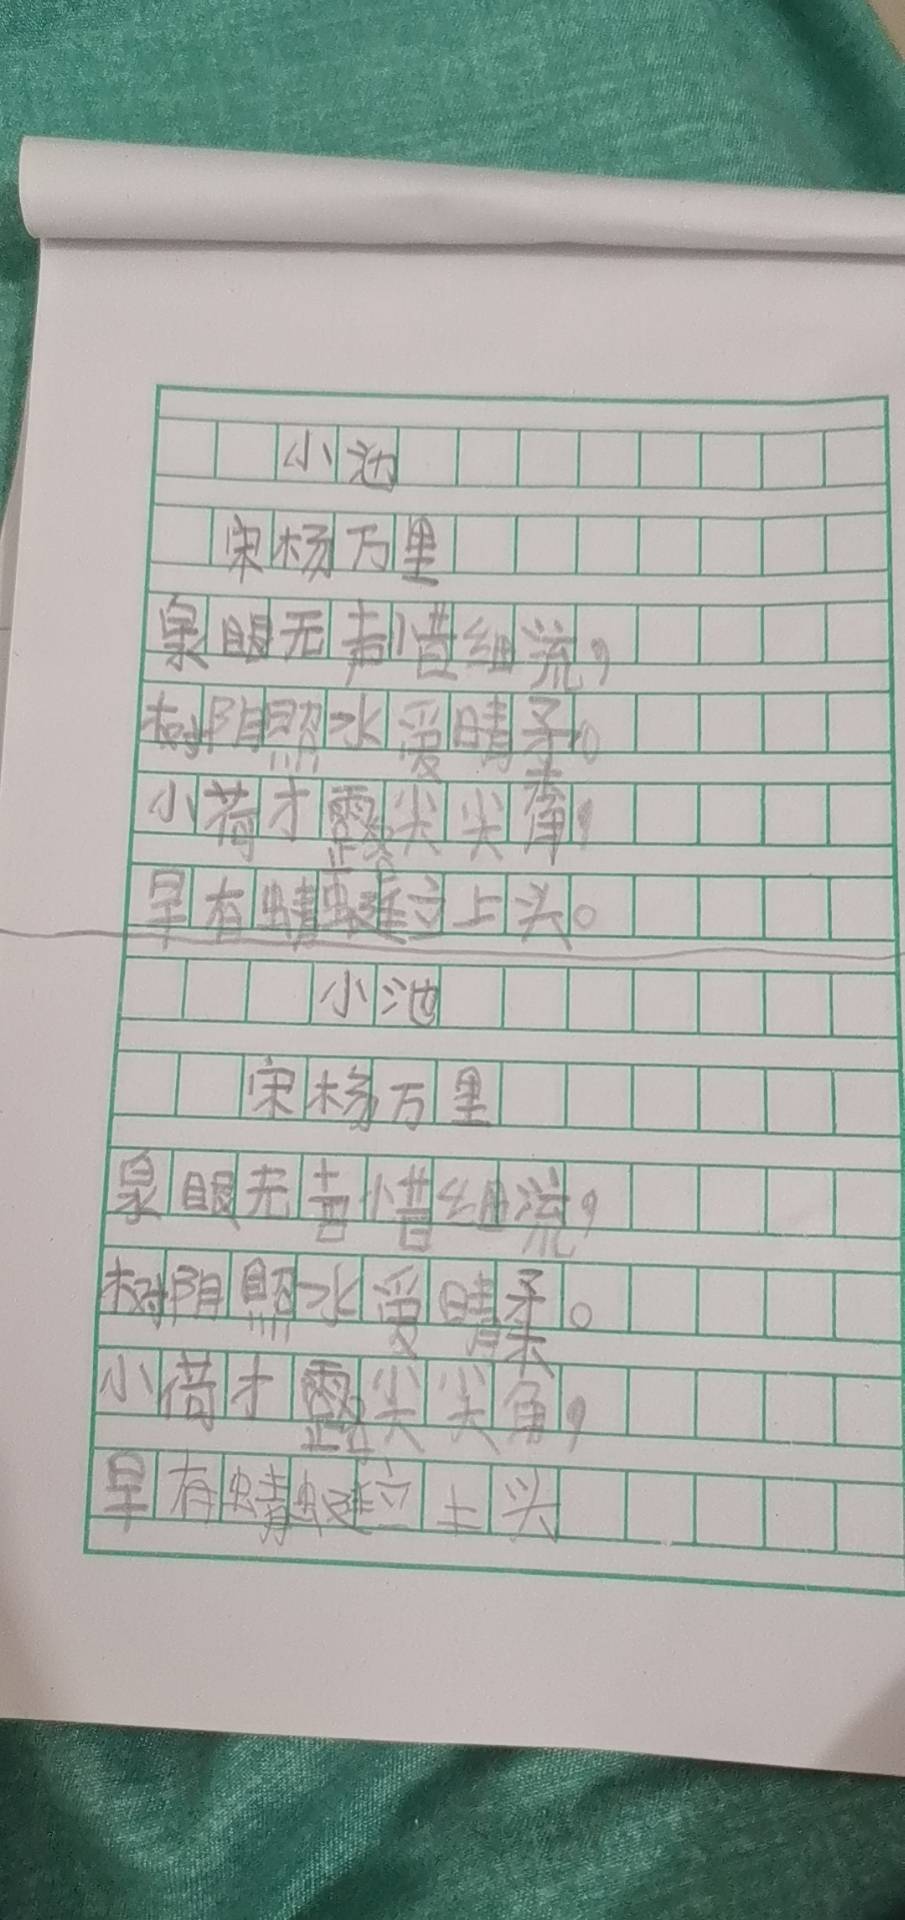 小池
宋杨万里
泉眼无声惜细流，
树阴照水爱晴柔。
小荷才露尖尖角，
早有蜻蜓立上头。
小池
宋杨万里
泉眼无惜细流，
树阴照水爱晴柔。
小荷才露尖尖角，
早有蜻蜓立上头